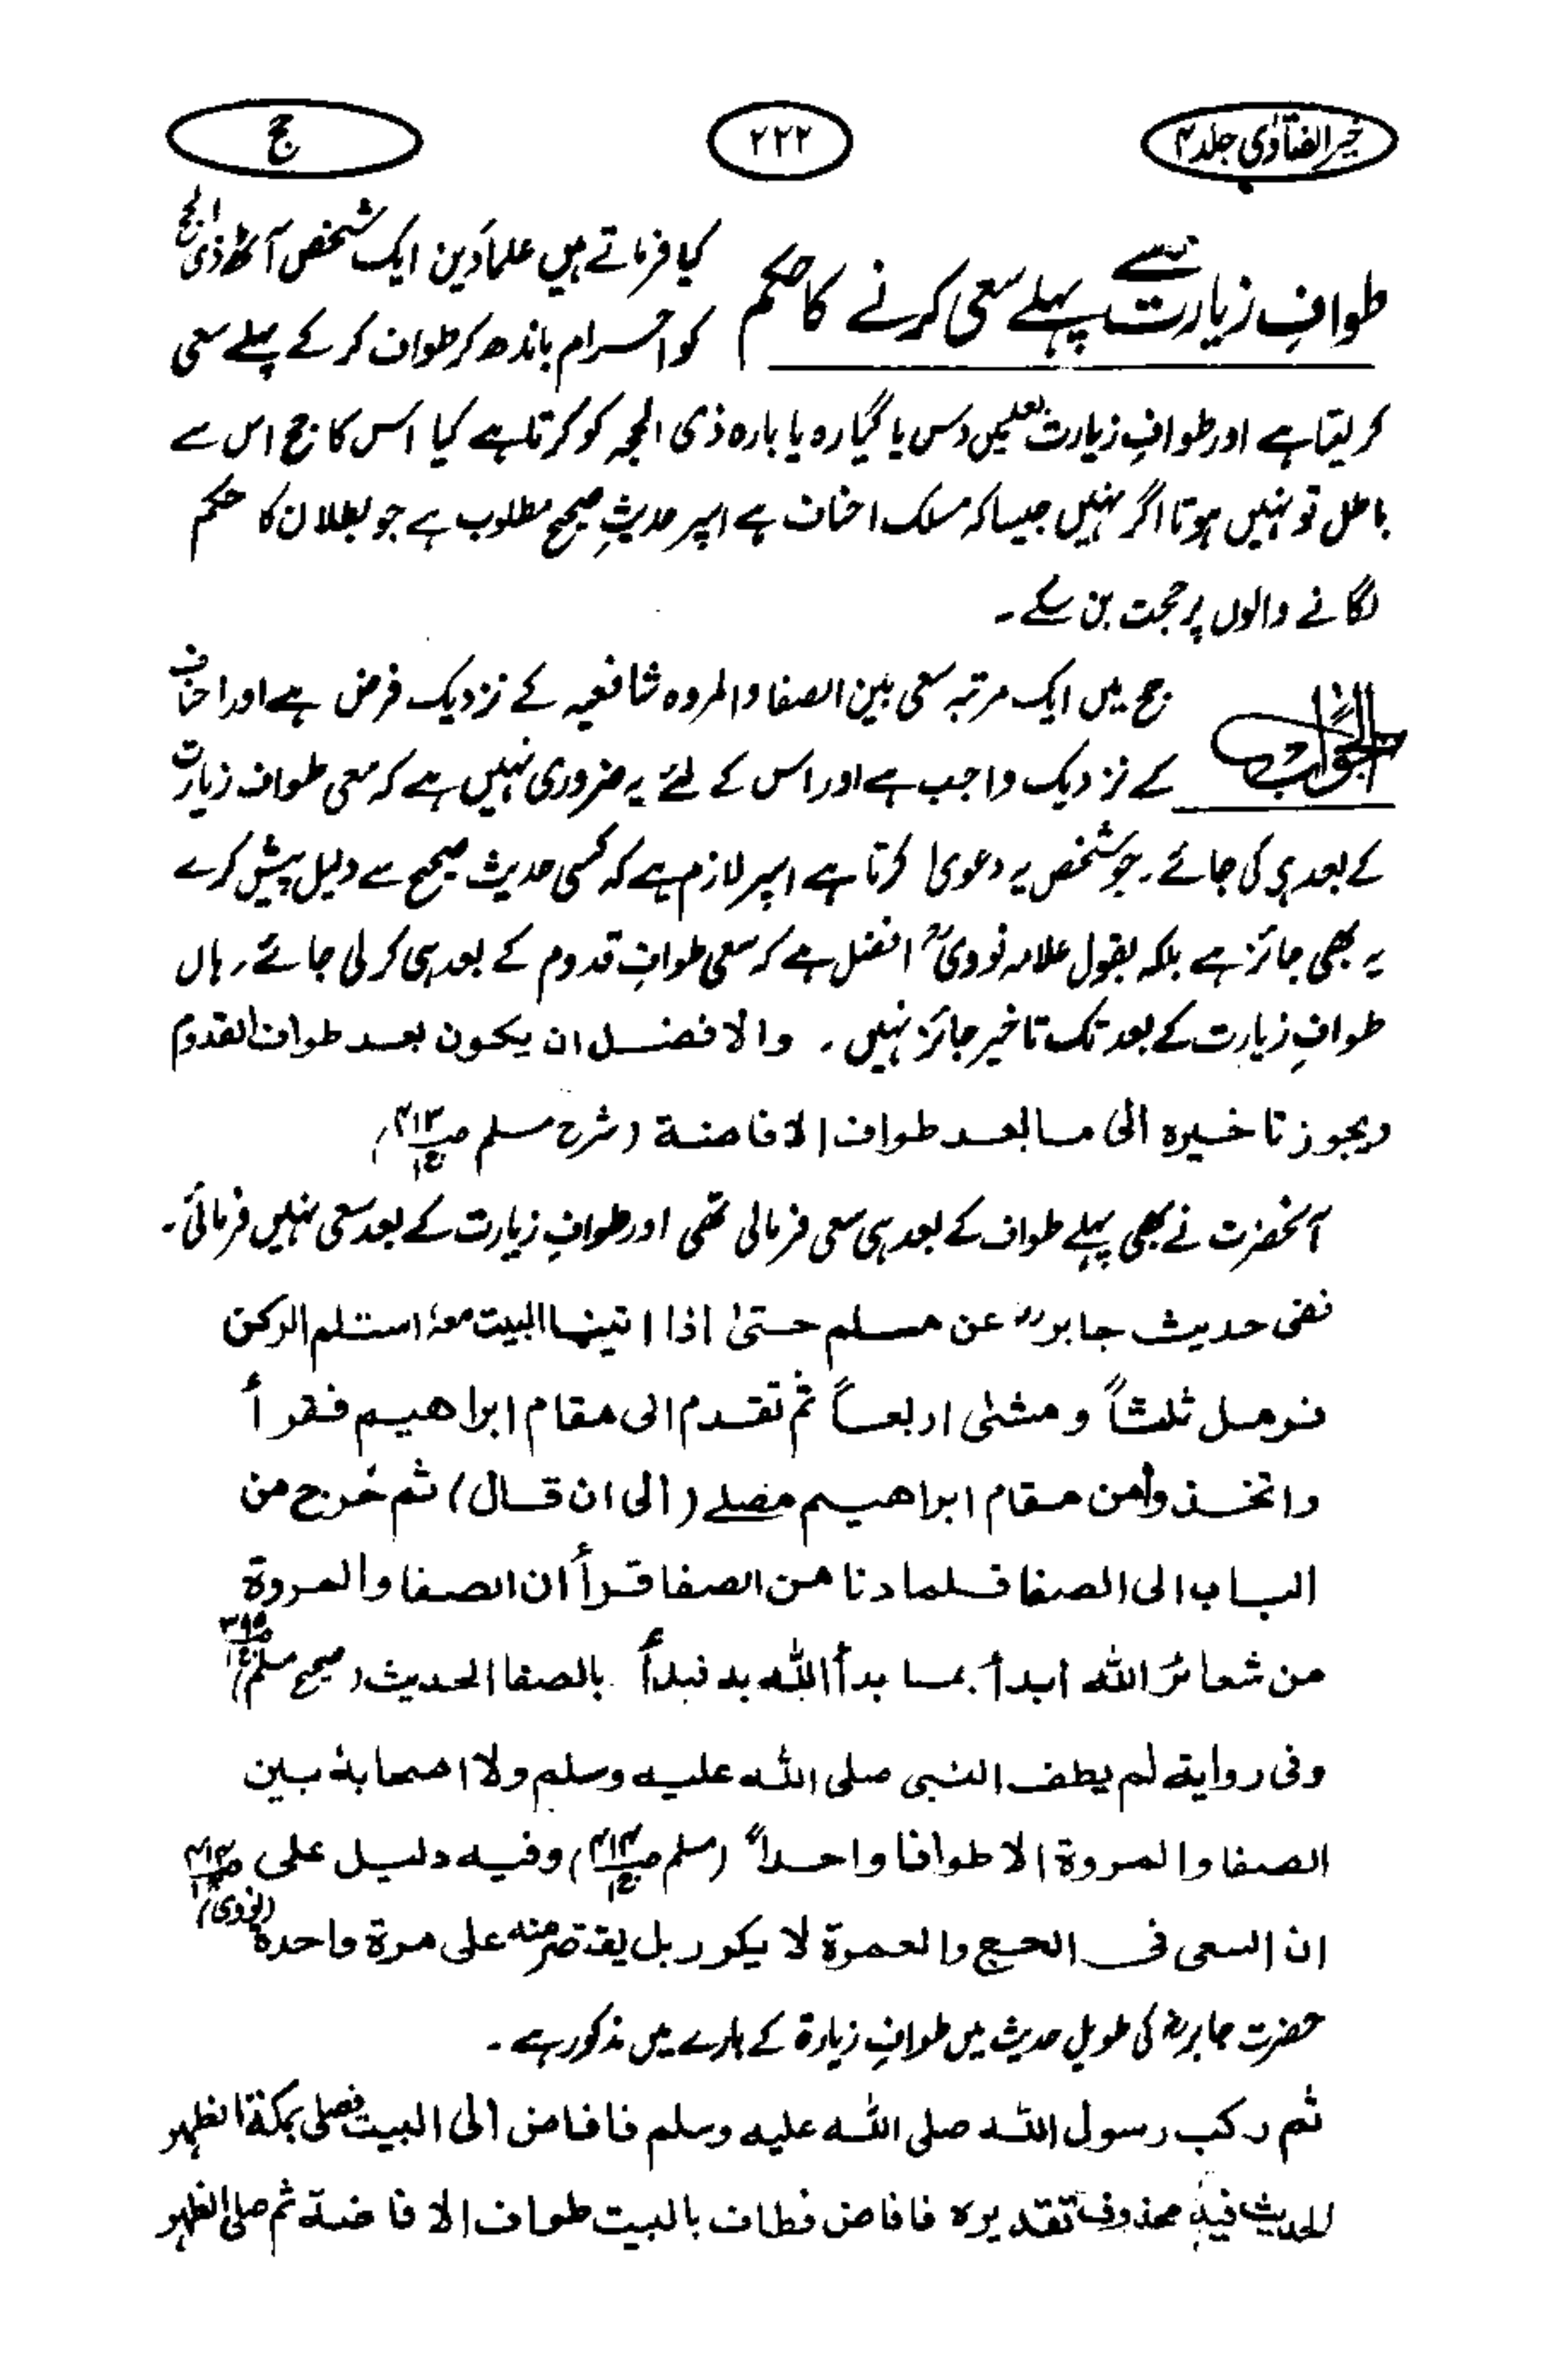 خیر الفتاویٰ جلد ۴
۲۲۲
حج
طوافِ زیارت سے پہلے سعی کرنے کا حکم
کیا فرماتے ہیں علماءِ دین ایک شخص آٹھ ذی الحج
کو احرام باندھ کر طواف کر کے پہلے سعی
کر لیتا ہے اور طوافِ زیارت بعد میں دس یا گیارہ یا بارہ ذی الحجہ کو کرتا ہے کیا اس کا حج اس سے
باطل تو نہیں ہوتا اگر نہیں جیسا کہ مسلک احناف ہے اسپر حدیثِ صحیح مطلوب ہے جو بطلان کا حکم
لگانے والوں پر حجت بن سکے۔
الجواب
حج میں ایک مرتبہ سعی بین الصفا والمروہ شافعیہ کے نزدیک فرض ہے اور احناف
کے نزدیک واجب ہے اور اس کے لئے یہ ضروری نہیں ہے کہ سعی طواف زیارت
کے بعد ہی کی جائے۔ جو شخص یہ دعویٰ کرتا ہے اسپر لازم ہے کہ کسی حدیث صحیح سے دلیل پیش کرے
یہ بھی جائز ہے بلکہ بقول علامہ نووی افضل ہے کہ سعی طوافِ قدوم کے بعد ہی کر لی جائے، ہاں
طوافِ زیارت کے بعد تک تاخیر جائز نہیں۔ والافضل ان یکون بعد طواف القدوم
ویجوز تاخیرہ الی ما بعد طواف الافاضة (شرح مسلم ص۴۱۳ ج۱)
آنحضرت نے بھی پہلے طواف کے بعد ہی سعی فرمالی تھی اور طوافِ زیارت کے بعد سعی نہیں فرمائی۔
نفی حدیث جابر عن مسلم حتیٰ اذا اتینا البیت معہ استلم الرکن
فرمل ثلثاً ومشیٰ اربعاً ثم تقدم الی مقام ابراھیم فقرأ
واتخذوا من مقام ابراھیم مصلے (الی ان قال) ثم خرج من
الباب الی الصفا فلما دنا من الصفا قرأ ان الصفا والمروة
من شعائر اللہ ابدأ بما بدأ اللہ بہ فبدأ بالصفا الحدیث (صحیح مسلم ص۳۹۵ ج۱)
وفی روایة لم یطف النبی صلی اللہ علیہ وسلم ولا اصحابہ بین
الصفا والمروة الا طوافا واحداً (مسلم ص۴۱۴ ج۱) وفیہ دلیل علی
ان السعی فی الحج والعمرة لا یکرر بل یقتصر منہ علی مرة واحدة (نووی)
حضرت جابرؓ کی طویل حدیث میں طوافِ زیارۃ کے بارے میں مذکور ہے۔
ثم رکب رسول اللہ صلی اللہ علیہ وسلم فافاض الی البیت فصلی بمکة الظہر
الحدیث فیہ محذوف تقدیرہ فافاض فطاف بالبیت طواف الافاضة ثم صلی الظہر